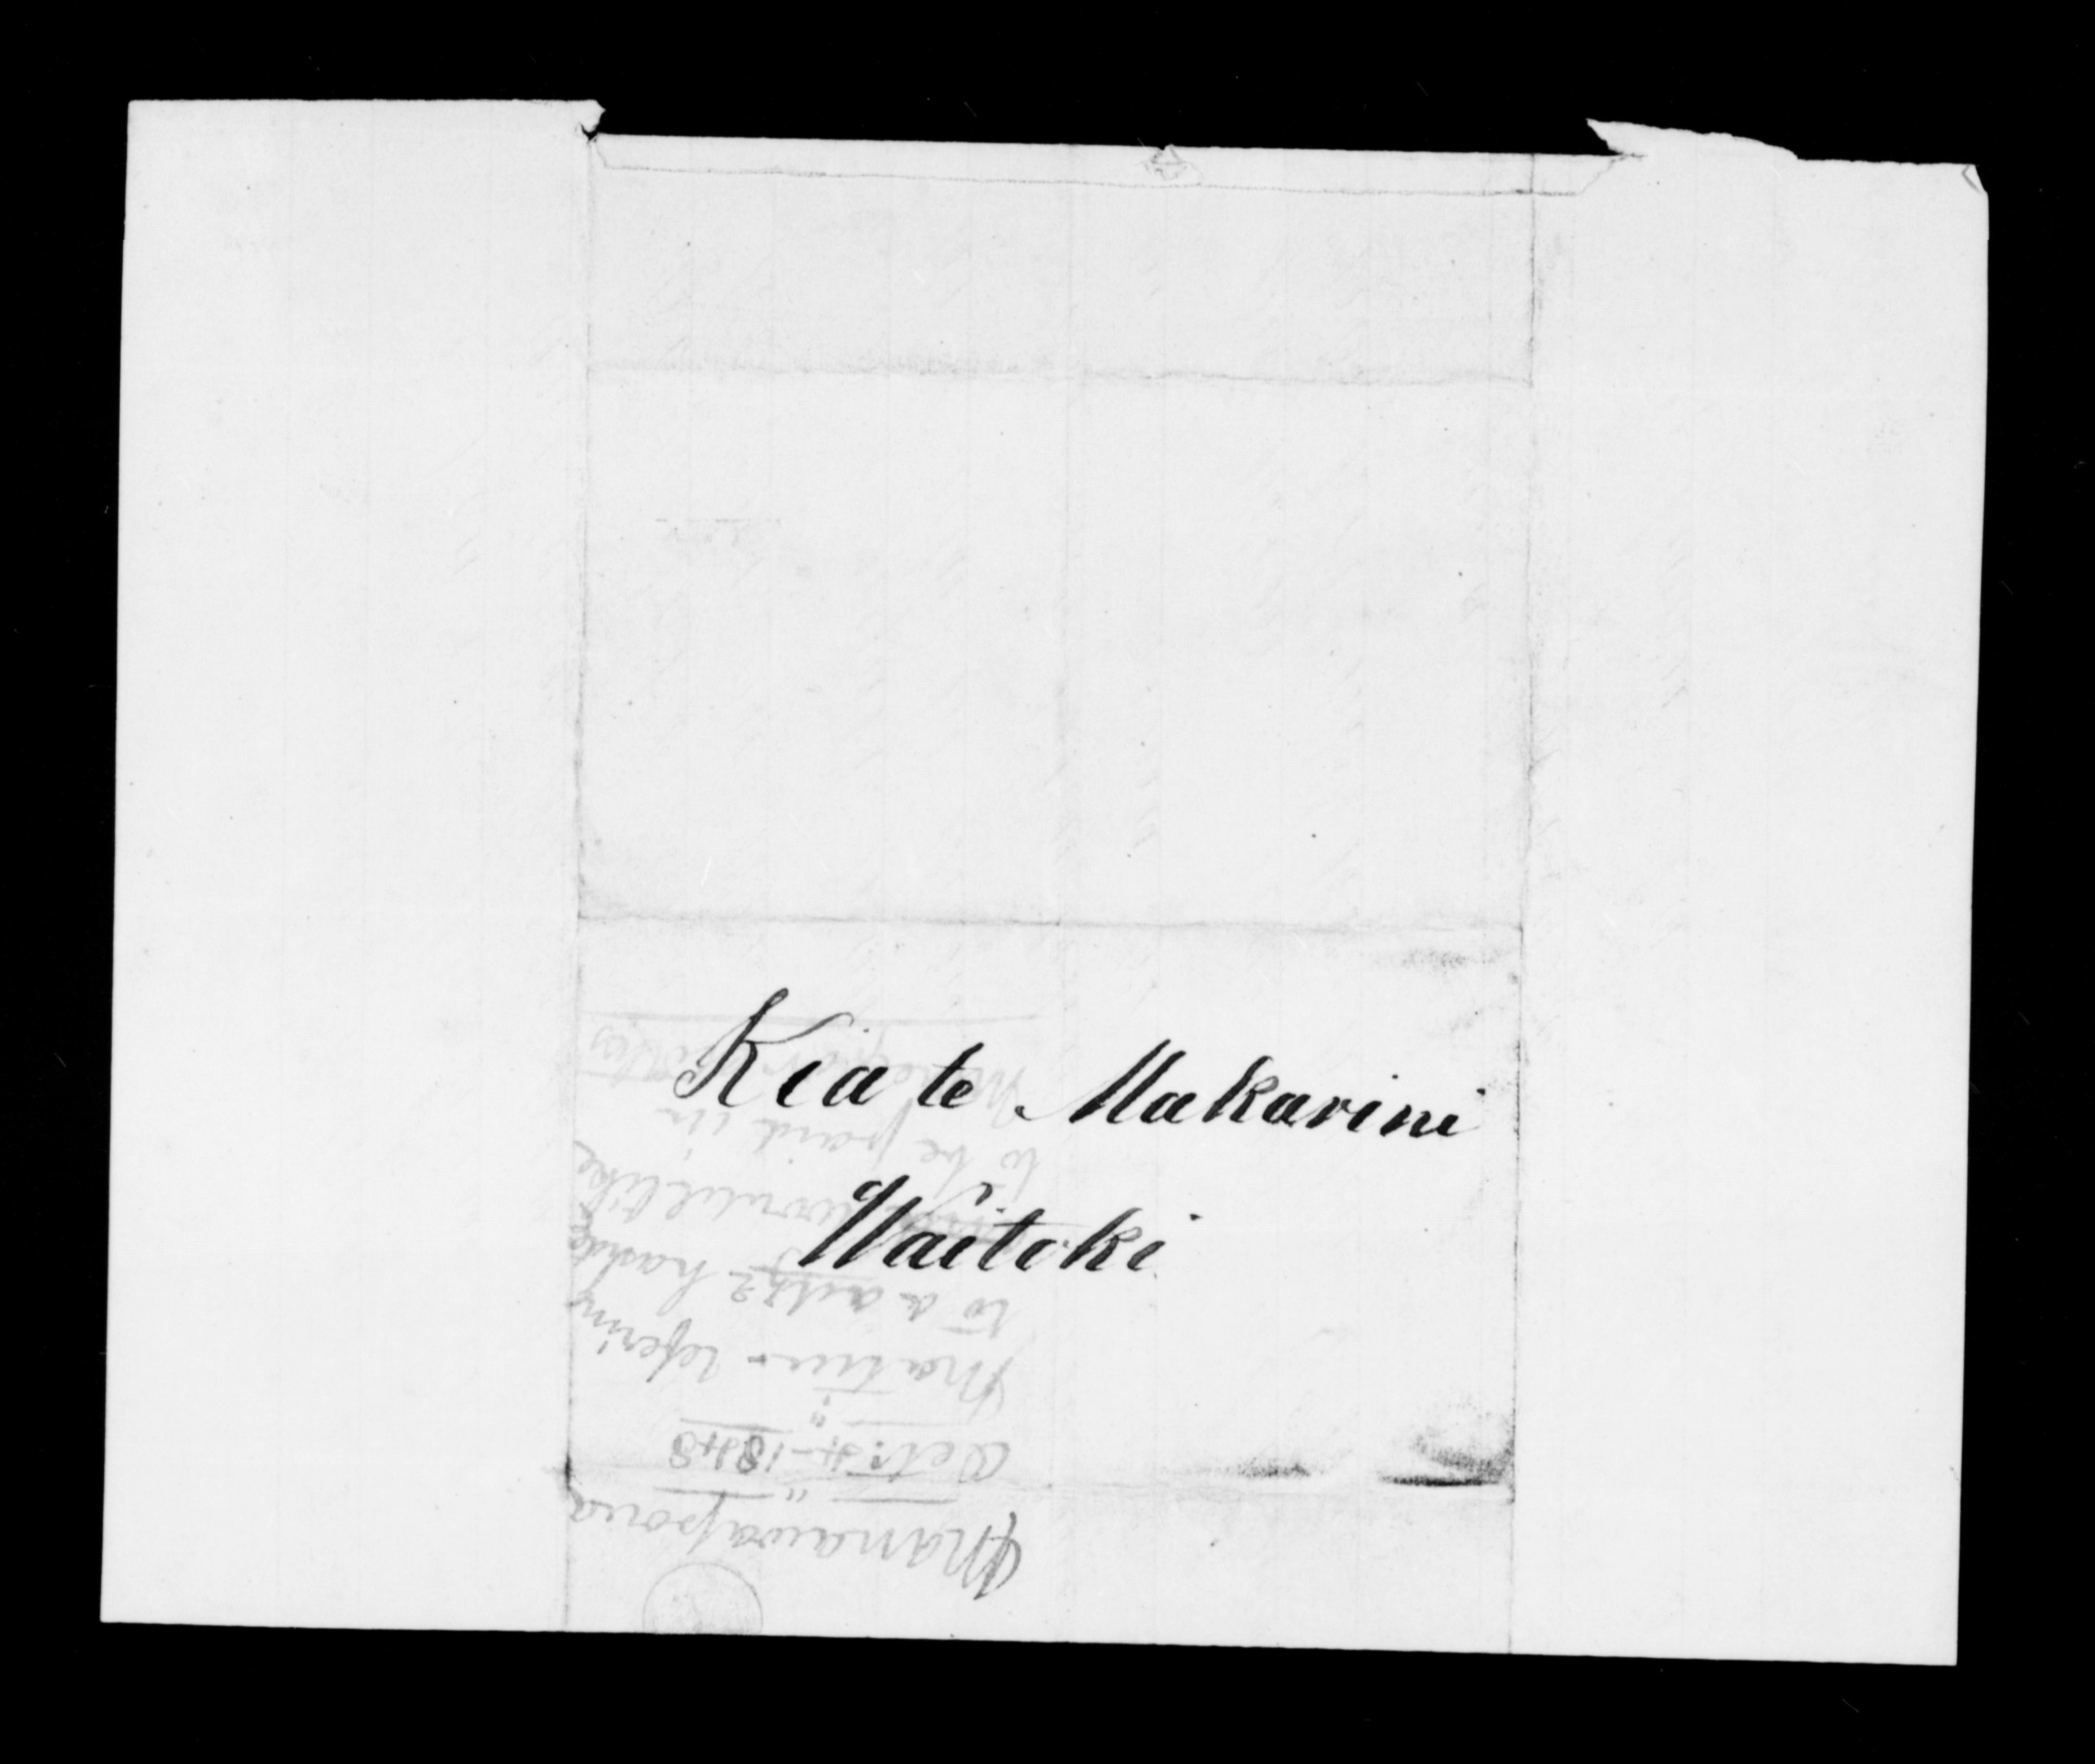 Kia te Makarini
Waitoki
Manawapou
Octr. 4 - 1848
Matiu - refering
to a
would like
to be paid in